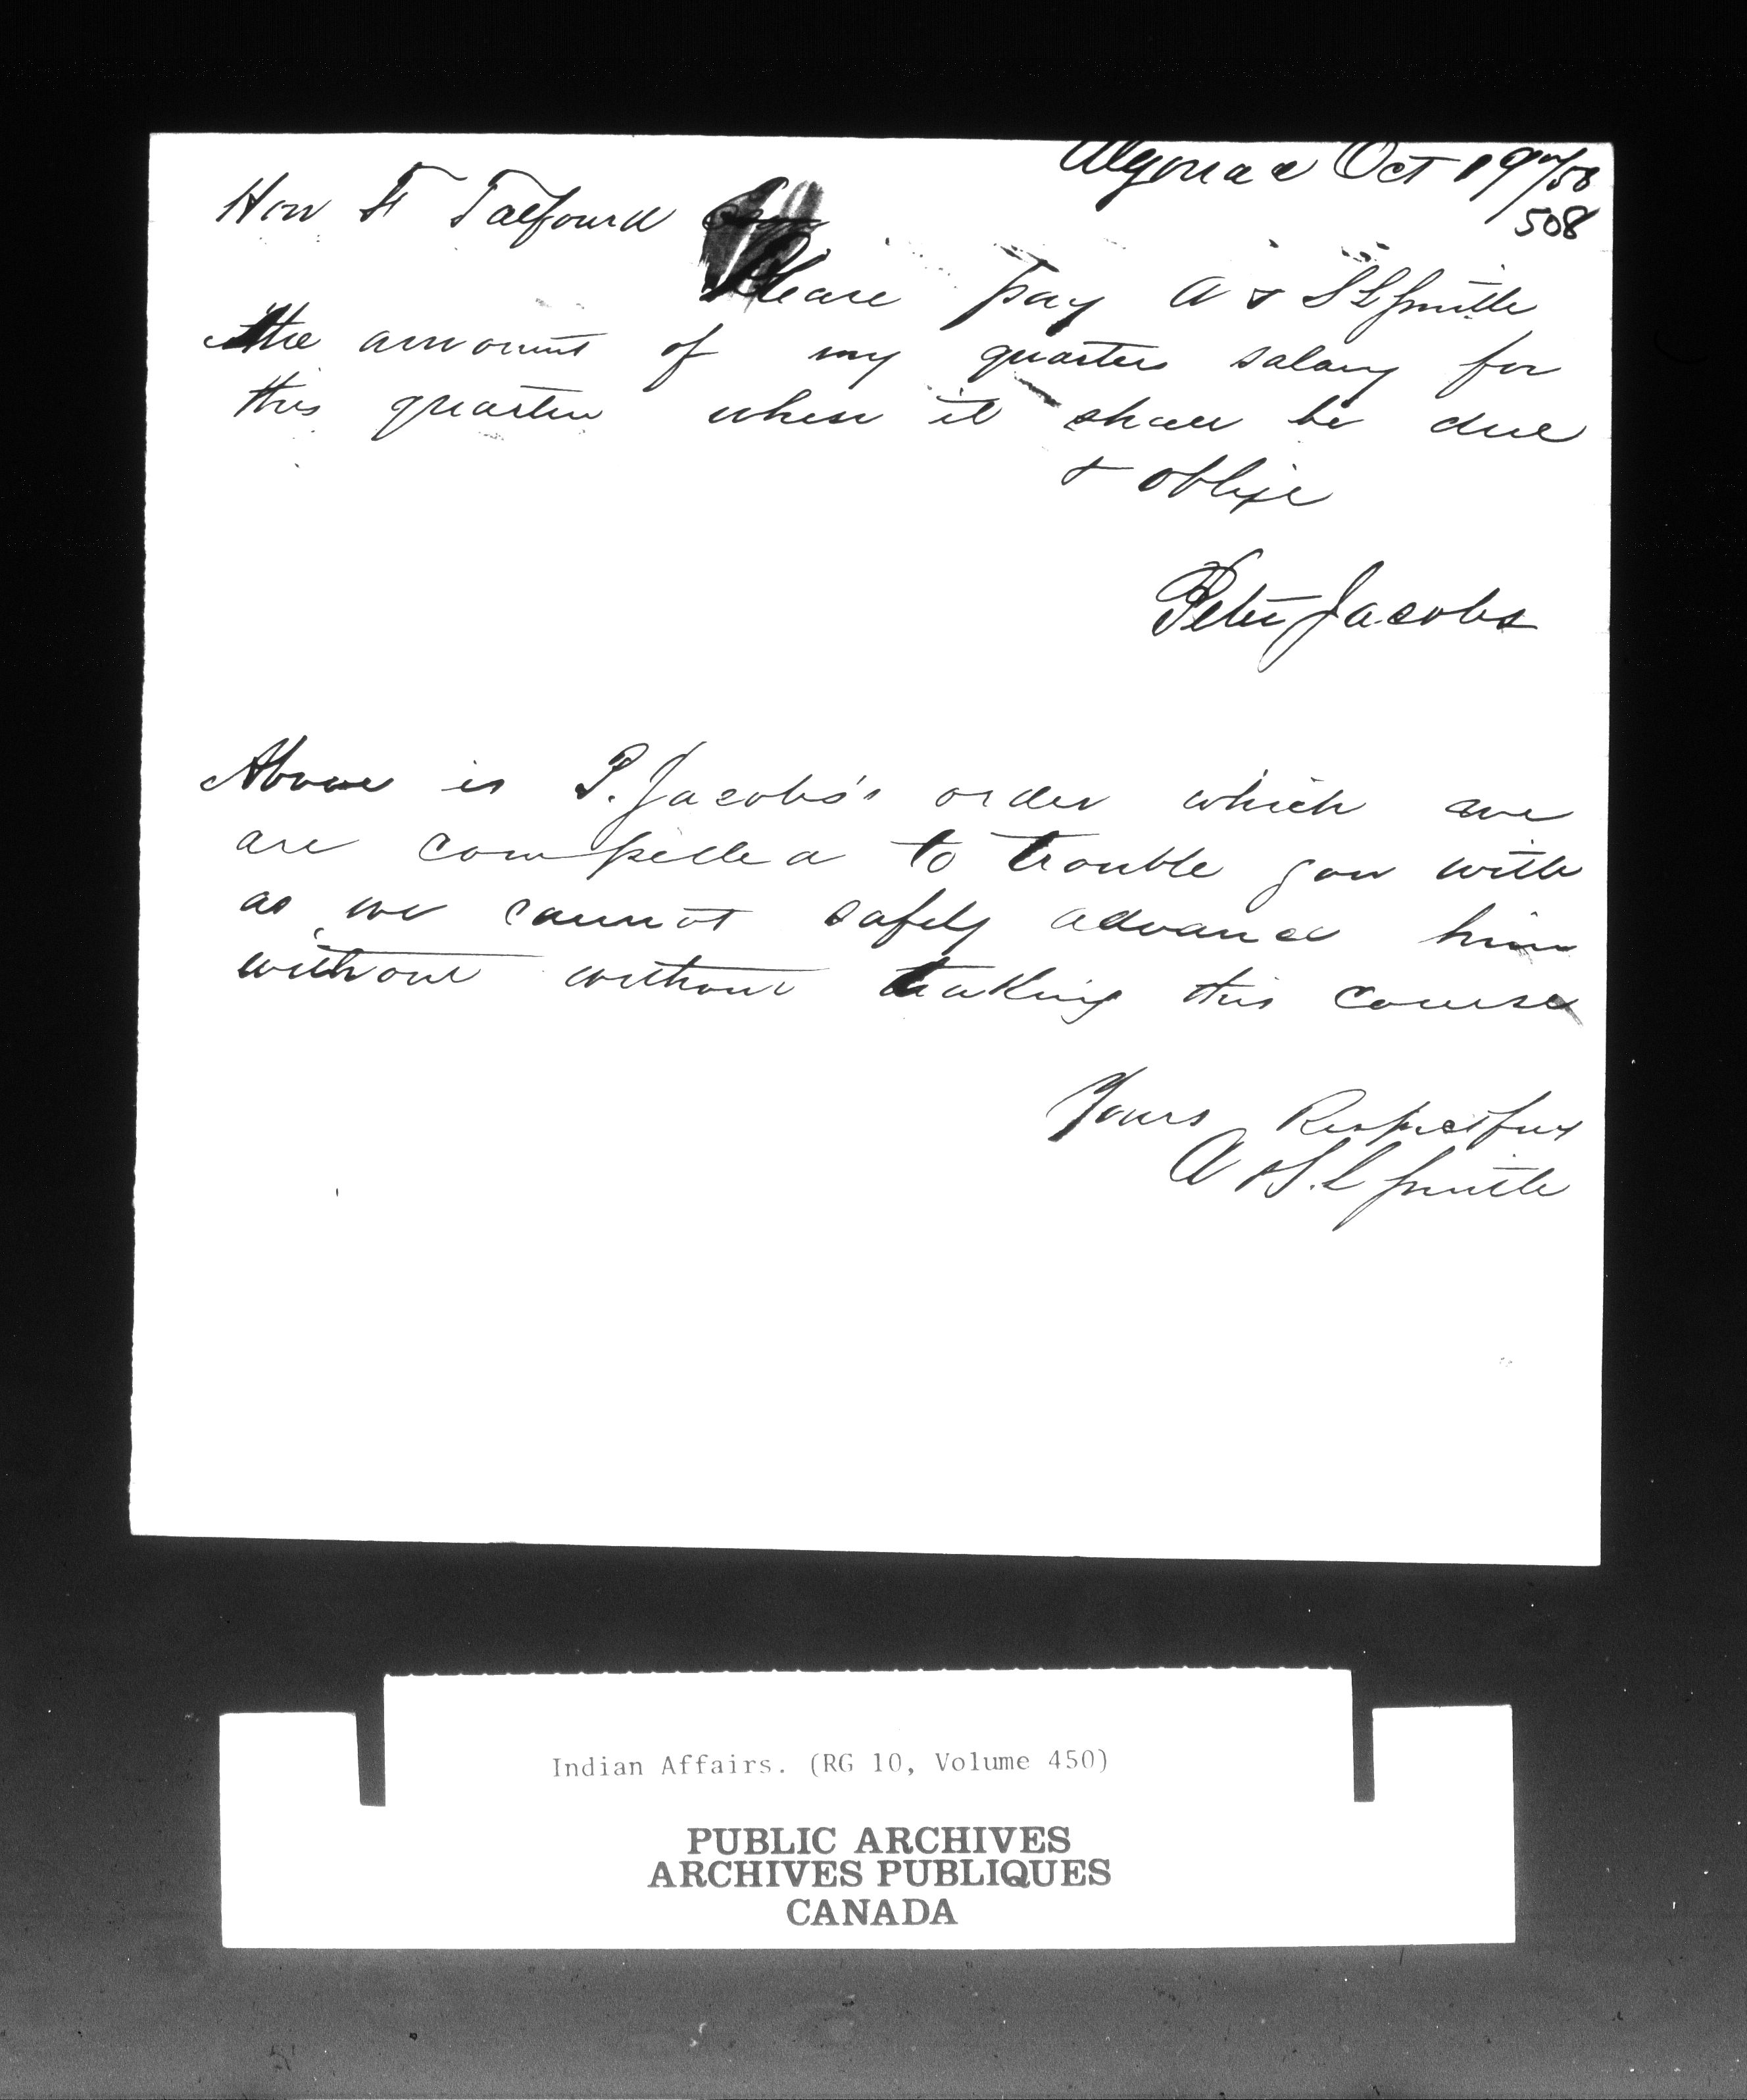 Algonac Oct 19th/58
508
Hon F Talfourd
Please pay A & S L Smith
the amount of my quarters salary for
this quarter when it shall be due
& oblige
Peter Jacobs
Above is P. Jacobs's order which we
are compelled to trouble you with
as we cannot safely advance him
without without taking this course
Yours Respectfuly
A & S. L Smith
Indian Affairs. (RG 10, Volume 450)
PUBLIC ARCHIVES
ARCHIVES PUBLIQUES
CANADA